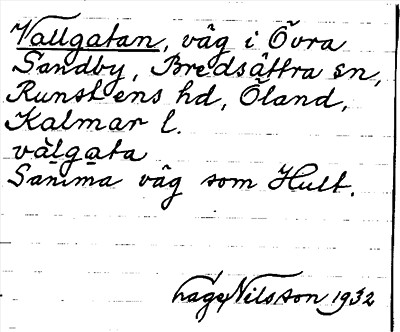 Vallgatan, väg i Övra
Sandby, Bredsättra sn,
Runstens hd, Öland,
Kalmar l.
vàlgata
Samma väg som Hult.
Hage Nilsson 1932